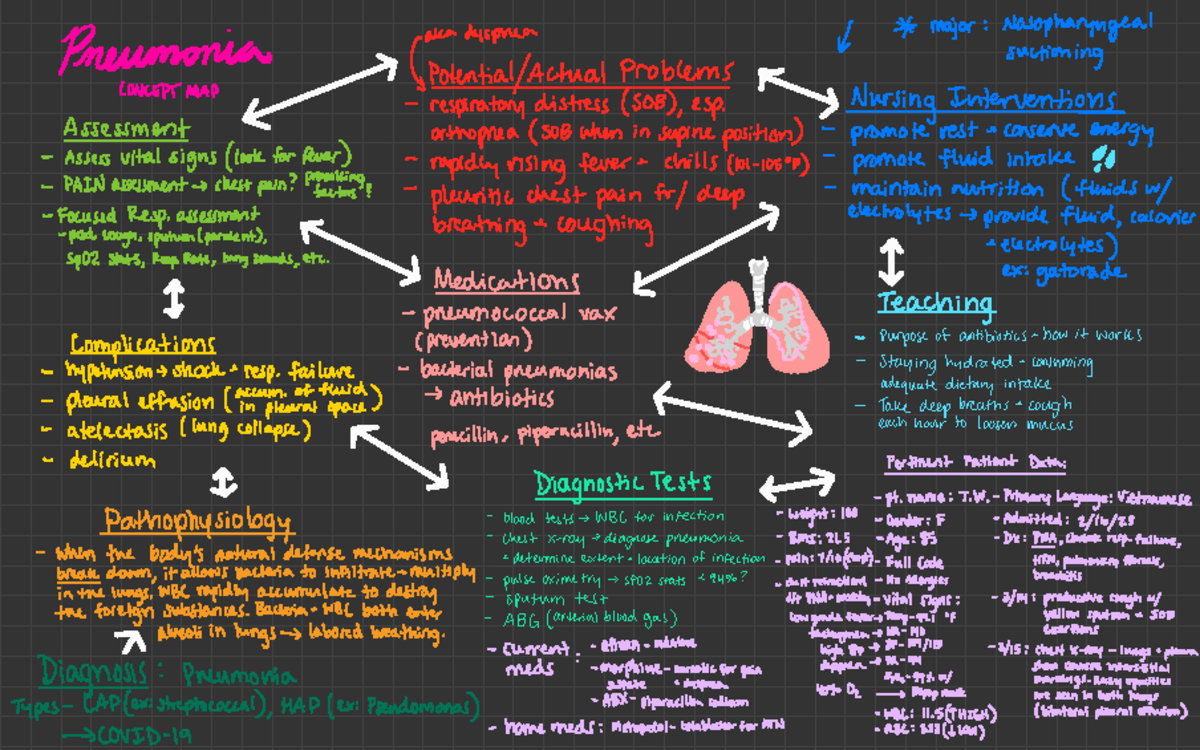 Pneumonia
CONCEPT MAP
Assessment
- Assess vital signs (look for fever)
- PAIN assessment → chest pain? provoking factors?!
- Focused Resp. assessment
cough, sputum (purulent),
SpO2 stats, Resp Rate, lung sounds, etc.
aka dyspnea
Potential/Actual Problems
- respiratory distress (SOB), esp.
orthopnea (SOB when in supine position)
- rapidly rising fever + chills (101-105°F)
- pleuritic chest pain fr/ deep
breathing + coughing
* major: Nasopharyngeal
suctioning
Nursing Interventions
- promote rest + conserve energy
- promote fluid intake
- maintain nutrition (fluids w/
electrolytes → provide fluid, calories
+ electrolytes)
ex: gatorade
Medications
- pneumococcal vax
(prevention)
- bacterial pneumonias
→ antibiotics
penicillin, piperacillin, etc
Teaching
- Purpose of antibiotics + how it works
- Staying hydrated + consuming
adequate dietary intake
- Take deep breaths + cough
each hour to loosen mucus
Complications
- hypotension → shock + resp. failure
- pleural effusion (accum. of fluid
in pleural space)
- atelectasis (lung collapse)
- delirium
Pathophysiology
- When the body's natural defense mechanisms
break down, it allows bacteria to infiltrate + multiply
in the lungs. WBC rapidly accumulate to destroy
the foreign substances. Bacteria + WBC both enter
alveoli in lungs → labored breathing.
Diagnosis: Pneumonia
Types - CAP (ex: streptococcal), HAP (ex: Pseudomonas)
→ COVID-19
Diagnostic Tests
- blood tests → WBC for infection
- chest x-ray → diagnose pneumonia
+ determine extent + location of infection
- pulse oximetry → SpO2 stats < 94%?
- sputum test
- ABG (arterial blood gas)
- current meds:
- morphine - narcotic for pain
- ABX - piperacillin sodium
- home meds: Metoprolol - betablocker for HTN
Pertinent Patient Data:
- Weight: 100
- BMI: 21.5
- pain: 7/10
low grade fever
high BP
low O2
- pt. name: T.W.
- Gender: F
- Age: 85
- Full Code
- No Allergies
- Vital Signs:
- WBC: 11.5 (↑HIGH)
- Primary Language: Vietnamese
- Admitted: 2/16/23
- Dx: PNA, resp. failure,
HTN, pulmonary fibrosis,
bronchitis
productive cough w/
yellow sputum + SOB
chest x-ray - lungs + pleura
show interstitial
markings. Hazy opacities
are seen in both lungs
(bilateral pleural effusion)